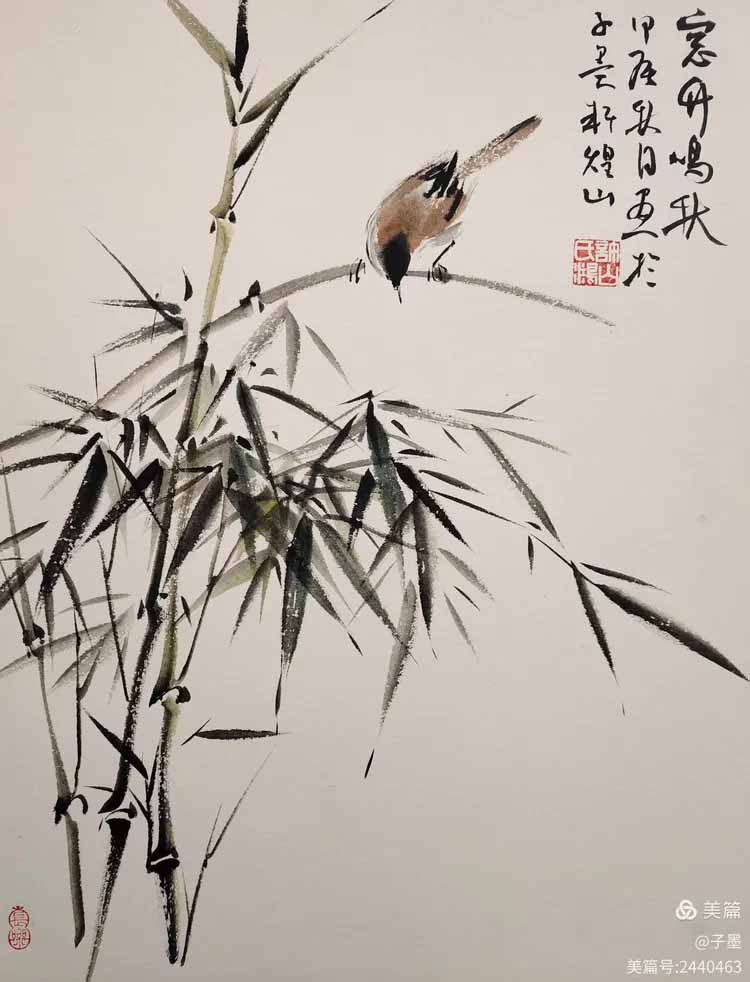 窓竹鳴秋
甲辰秋日画於
子墨轩煌山
美篇
@子墨
美篇号:2440463